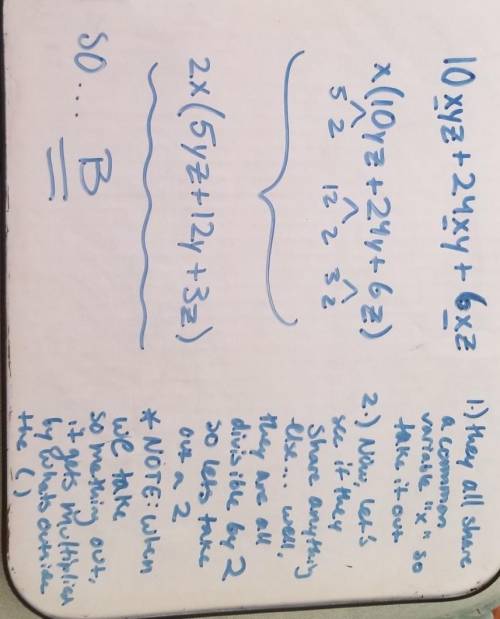 10xyz + 24xy + 6xz
x(10yz + 24y + 6z)
5 2 12 2 3 2
2x(5yz + 12y + 3z)
so... B
1.) they all share
a common
variable "x" so
take it out
2.) Now, let's
see if they
share anything
else... well,
they are all
divisible by 2
so lets take
out a 2
* NOTE: when
we take
something out,
it gets multiplied
by whats outside
the ( )